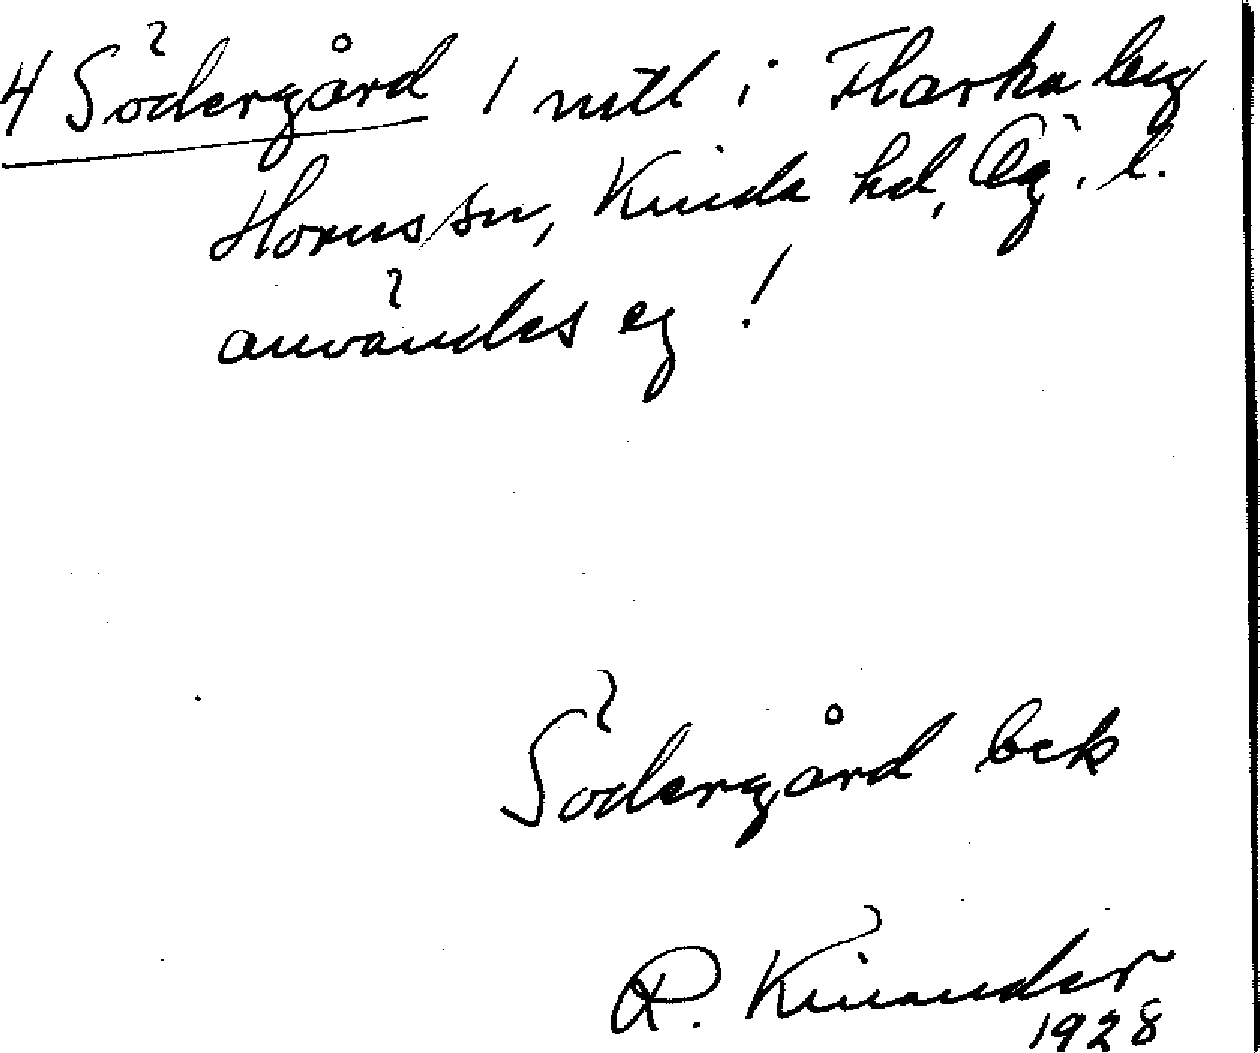 4 Södergård 1 mtl i Flarkaby
Horns sn, Kinda hd, Ög. l.
användes ej!
Södergård bek
R. Kinander
1928